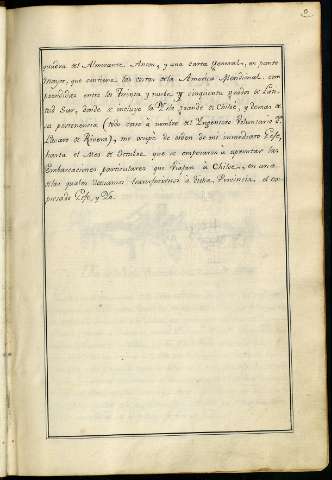 2
quiera del Almirante Anson, y una carta General, en punto
mayor, que contiene las costas de la America Meridional, com
prendidas entre los treinta y nueve y cinquenta grados de Lati
tud Sur, donde se incluye la Ysla grande de Chiloé, y demas de
su pertenencia (todo esto à nombre del Yngeniero Voluntario Dn
Lazaro de Rivera), me ocupé de orden de mi inmediato Xefe,
hasta el Mes de Octubre que se empezaron à aprontar las
Embarcaciones particulares que viajan à Chiloé, en una
de las quales debiamos transferirnos à dicha Provincia, el ex
presado Xefe, y Yo.